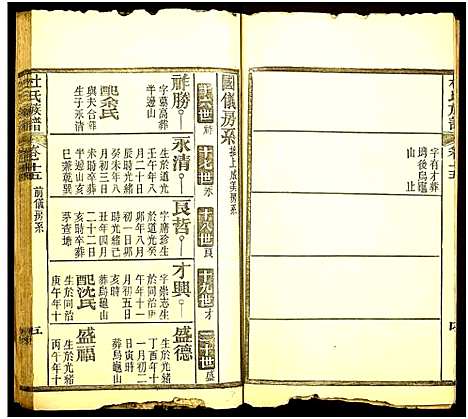 杜氏族譜
卷十五
字有才葬
塆後烏龜
山 止
國儀房系
接上成美房系
十六世 祚
十七世 永
十八世 良
十九世 才
二十世 盛
祚勝
字萬高葬
半邊山
配余氏
與夫合葬
生子永清
永清
生於道光
壬午年八
月初八日
癸未年八
月初三日
未時卒葬
半邊山
良哲
字席珍生
於道光癸
卯年八月
初一日卯
時光緒己
丑年四月
二十二日
亥時卒葬
茅查塘
才興
字崇志生
於同治十
一年十一
月初五日
亥時
葬烏龜山
配沈氏
生於同治
庚午年十
盛德
生於光緒
丁酉年十
一月初二
日寅時
葬烏龜山
盛福
生於光緒
丙午年十
杜氏族譜
卷十五
前儀房系
五